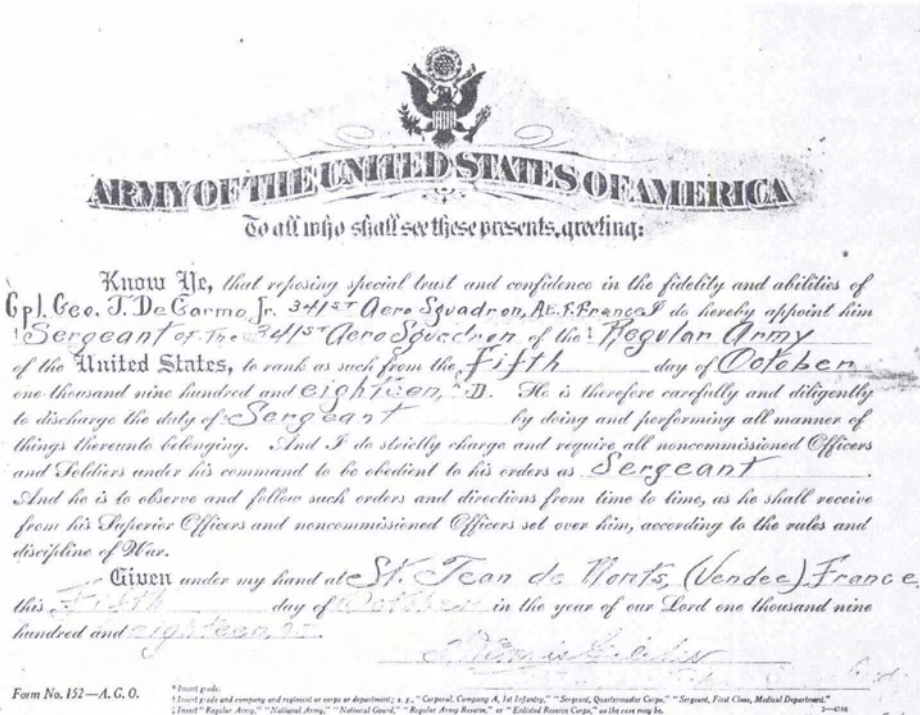 ARMY OF THE UNITED STATES OF AMERICA
To all who shall see these presents, greeting:
Know Ye, that reposing special trust and confidence in the fidelity and abilities of
Cpl. Geo. T. DeGarmo, Jr. 341ST Aero Squadron, A.E.F. France I do hereby appoint him
* Sergeant of The † 341ST Aero Squadron of the ‡ Regular Army
of the United States, to rank as such from the Fifth day of October
one thousand nine hundred and eighteen, A.D. He is therefore carefully and diligently
to discharge the duty of Sergeant by doing and performing all manner of
things thereunto belonging. And I do strictly charge and require all noncommissioned Officers
and Soldiers under his command to be obedient to his orders as Sergeant.
And he is to observe and follow such orders and directions from time to time, as he shall receive
from his Superior Officers and noncommissioned Officers set over him, according to the rules and
discipline of War.
Given under my hand at St. Jean de Monts, (Vendee), France
this Fifth day of October in the year of our Lord one thousand nine
hundred and eighteen,
Form No. 152—A. G. O.
* Insert grade.
† Insert grade and company and regiment or corps or department; e. g., "Corporal, Company A, 1st Infantry," "Sergeant, Quartermaster Corps," "Sergeant, First Class, Medical Department."
‡ Insert "Regular Army," "National Army," "National Guard," "Regular Army Reserve," or "Enlisted Reserve Corps," as the case may be.